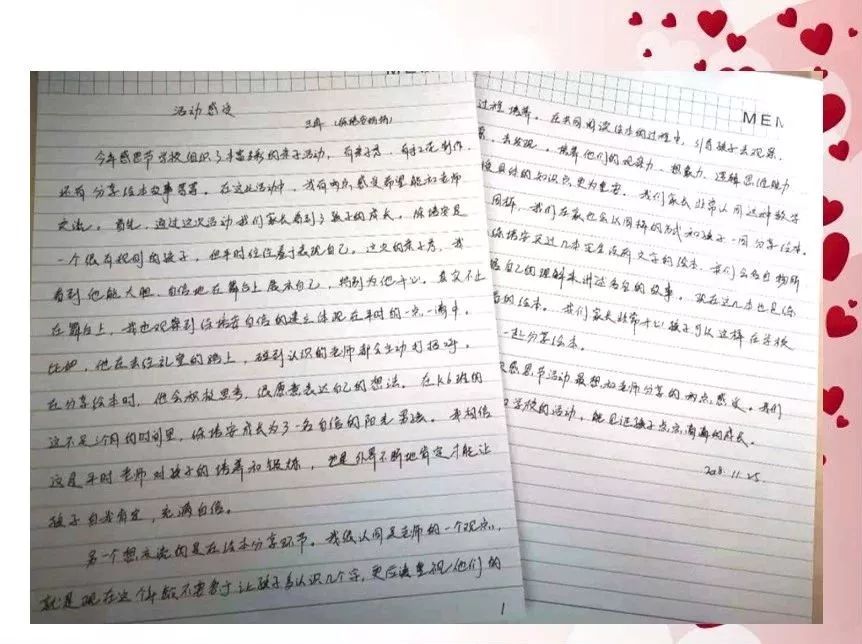 活动感受
(陈培安妈妈)
今年感恩节学校组织了丰富多彩的亲子活动,有亲子秀、有插花制作、
还有分享绘本故事等等。在这些活动中,我有两点感受希望能和老师
交流。首先,通过这次活动我们家长看到了孩子的成长。陈培安是
一个很有规则的孩子,但平时往往羞于表现自己。这次的亲子秀,我
看到他能大胆、自信地在舞台上展示自己,特别为他开心。其实不止
在舞台上,我也观察到陈培安自信的建立体现在平时的一点一滴中。
比如,他在去往礼堂的路上,碰到认识的老师都会主动打招呼。
在分享绘本时,他会积极思考,很愿意表达自己的想法。在K6班的
这不足3个月的时间里,陈培安成长为了一名自信的阳光男孩。我相信
这是平时老师对孩子的培养和锻炼,也是外界不断地肯定才能让
孩子自我肯定,充满自信。
另一个想交流的是在绘本分享环节。我很认同老师的一个观点,
就是现在这个年龄不要急于让孩子多认识几个字,更应该重视他们的
1
MEM
过程培养。在共同阅读绘本的过程中,引导孩子去观察、
去发现。培养他们的观察力、想象力、逻辑思维能力
具体的知识点更为重要。我们家长非常认同这种教学
同样,我们在家也会以同样的方式和孩子一同分享绘本。
陈培安买过几本完全没有文字的绘本,我们会各自
自己的理解来讲述各自的故事。现在这几本也是
的绘本。我们家长非常开心孩子可以这样在学校
一起分享绘本。
感恩节活动最想和老师分享的两点感受。我们
学校的活动,能见证孩子点点滴滴的成长。
2018.11.25